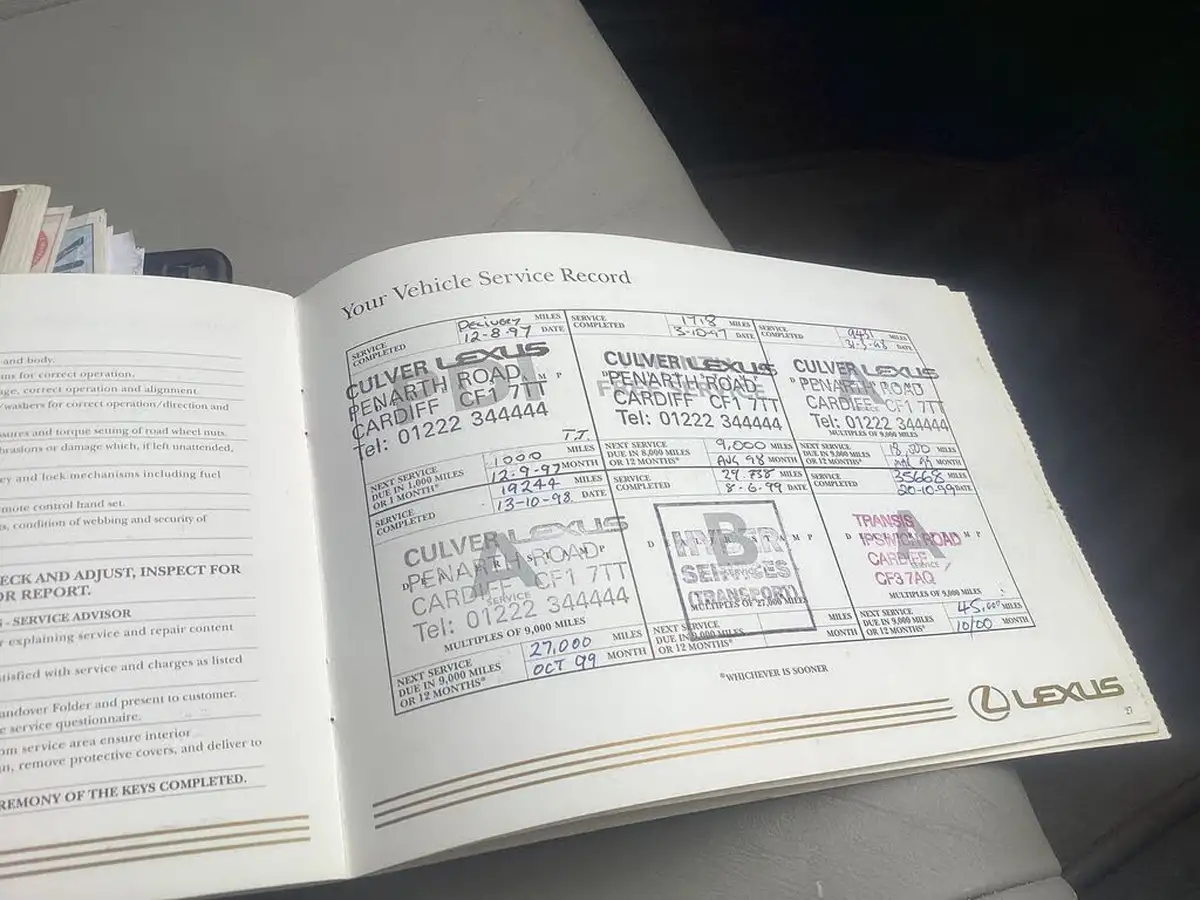 and body.
ms for correct operation.
ge, correct operation and alignment.
/washers for correct operation/direction and
sures and torque setting of road wheel nuts.
brasions or damage which, if left unattended,
ey and lock mechanisms including fuel
mote control hand set.
s, condition of webbing and security of
ECK AND ADJUST, INSPECT FOR
OR REPORT.
- SERVICE ADVISOR
r explaining service and repair content
tisfied with service and charges as listed
andover Folder and present to customer.
e service questionnaire.
om service area ensure interior
n, remove protective covers, and deliver to
REMONY OF THE KEYS COMPLETED.
Your Vehicle Service Record
SERVICE COMPLETED
Delivery MILES
12-8-97 DATE
CULVER LEXUS
PENARTH ROAD
CARDIFF CF1 7TT
Tel: 01222 344444
T.J.
NEXT SERVICE
DUE IN 1,000 MILES
OR 1 MONTH*
1000 MILES
12-9-97 MONTH
SERVICE COMPLETED
1718 MILES
3-10-97 DATE
CULVER LEXUS
PENARTH ROAD
FREE SERVICE
CARDIFF CF1 7TT
Tel: 01222 344444
NEXT SERVICE
DUE IN 8,000 MILES
OR 12 MONTHS*
9,000 MILES
AUG 98 MONTH
SERVICE COMPLETED
MILES
DATE
CULVER LEXUS
PENARTH ROAD
A
CARDIFF CF1 7TT
SERVICE
Tel: 01222 344444
MULTIPLES OF 9,000 MILES
NEXT SERVICE
DUE IN 9,000 MILES
OR 12 MONTHS*
18,000 MILES
MONTH
SERVICE COMPLETED
19244 MILES
13-10-98 DATE
CULVER LEXUS
DEALER STAMP
PENARTH ROAD
A
CARDIFF CF1 7TT
SERVICE
Tel: 01222 344444
MULTIPLES OF 9,000 MILES
NEXT SERVICE
DUE IN 9,000 MILES
OR 12 MONTHS*
27,000 MILES
OCT 99 MONTH
SERVICE COMPLETED
29.738 MILES
8-6-99 DATE
B
SERVICES
(TRANSPORT)
MULTIPLES OF 27,000 MILES
NEXT SERVICE
DUE IN 9,000 MILES
OR 12 MONTHS*
MILES
MONTH
SERVICE COMPLETED
35668 MILES
20-10-99 DATE
TRANSIS
A
IPSWICH ROAD
CARDIFF
SERVICE
CF3 7AQ
MULTIPLES OF 9,000 MILES
NEXT SERVICE
DUE IN 9,000 MILES
OR 12 MONTHS*
45,000 MILES
10/00 MONTH
*WHICHEVER IS SOONER
LEXUS
27